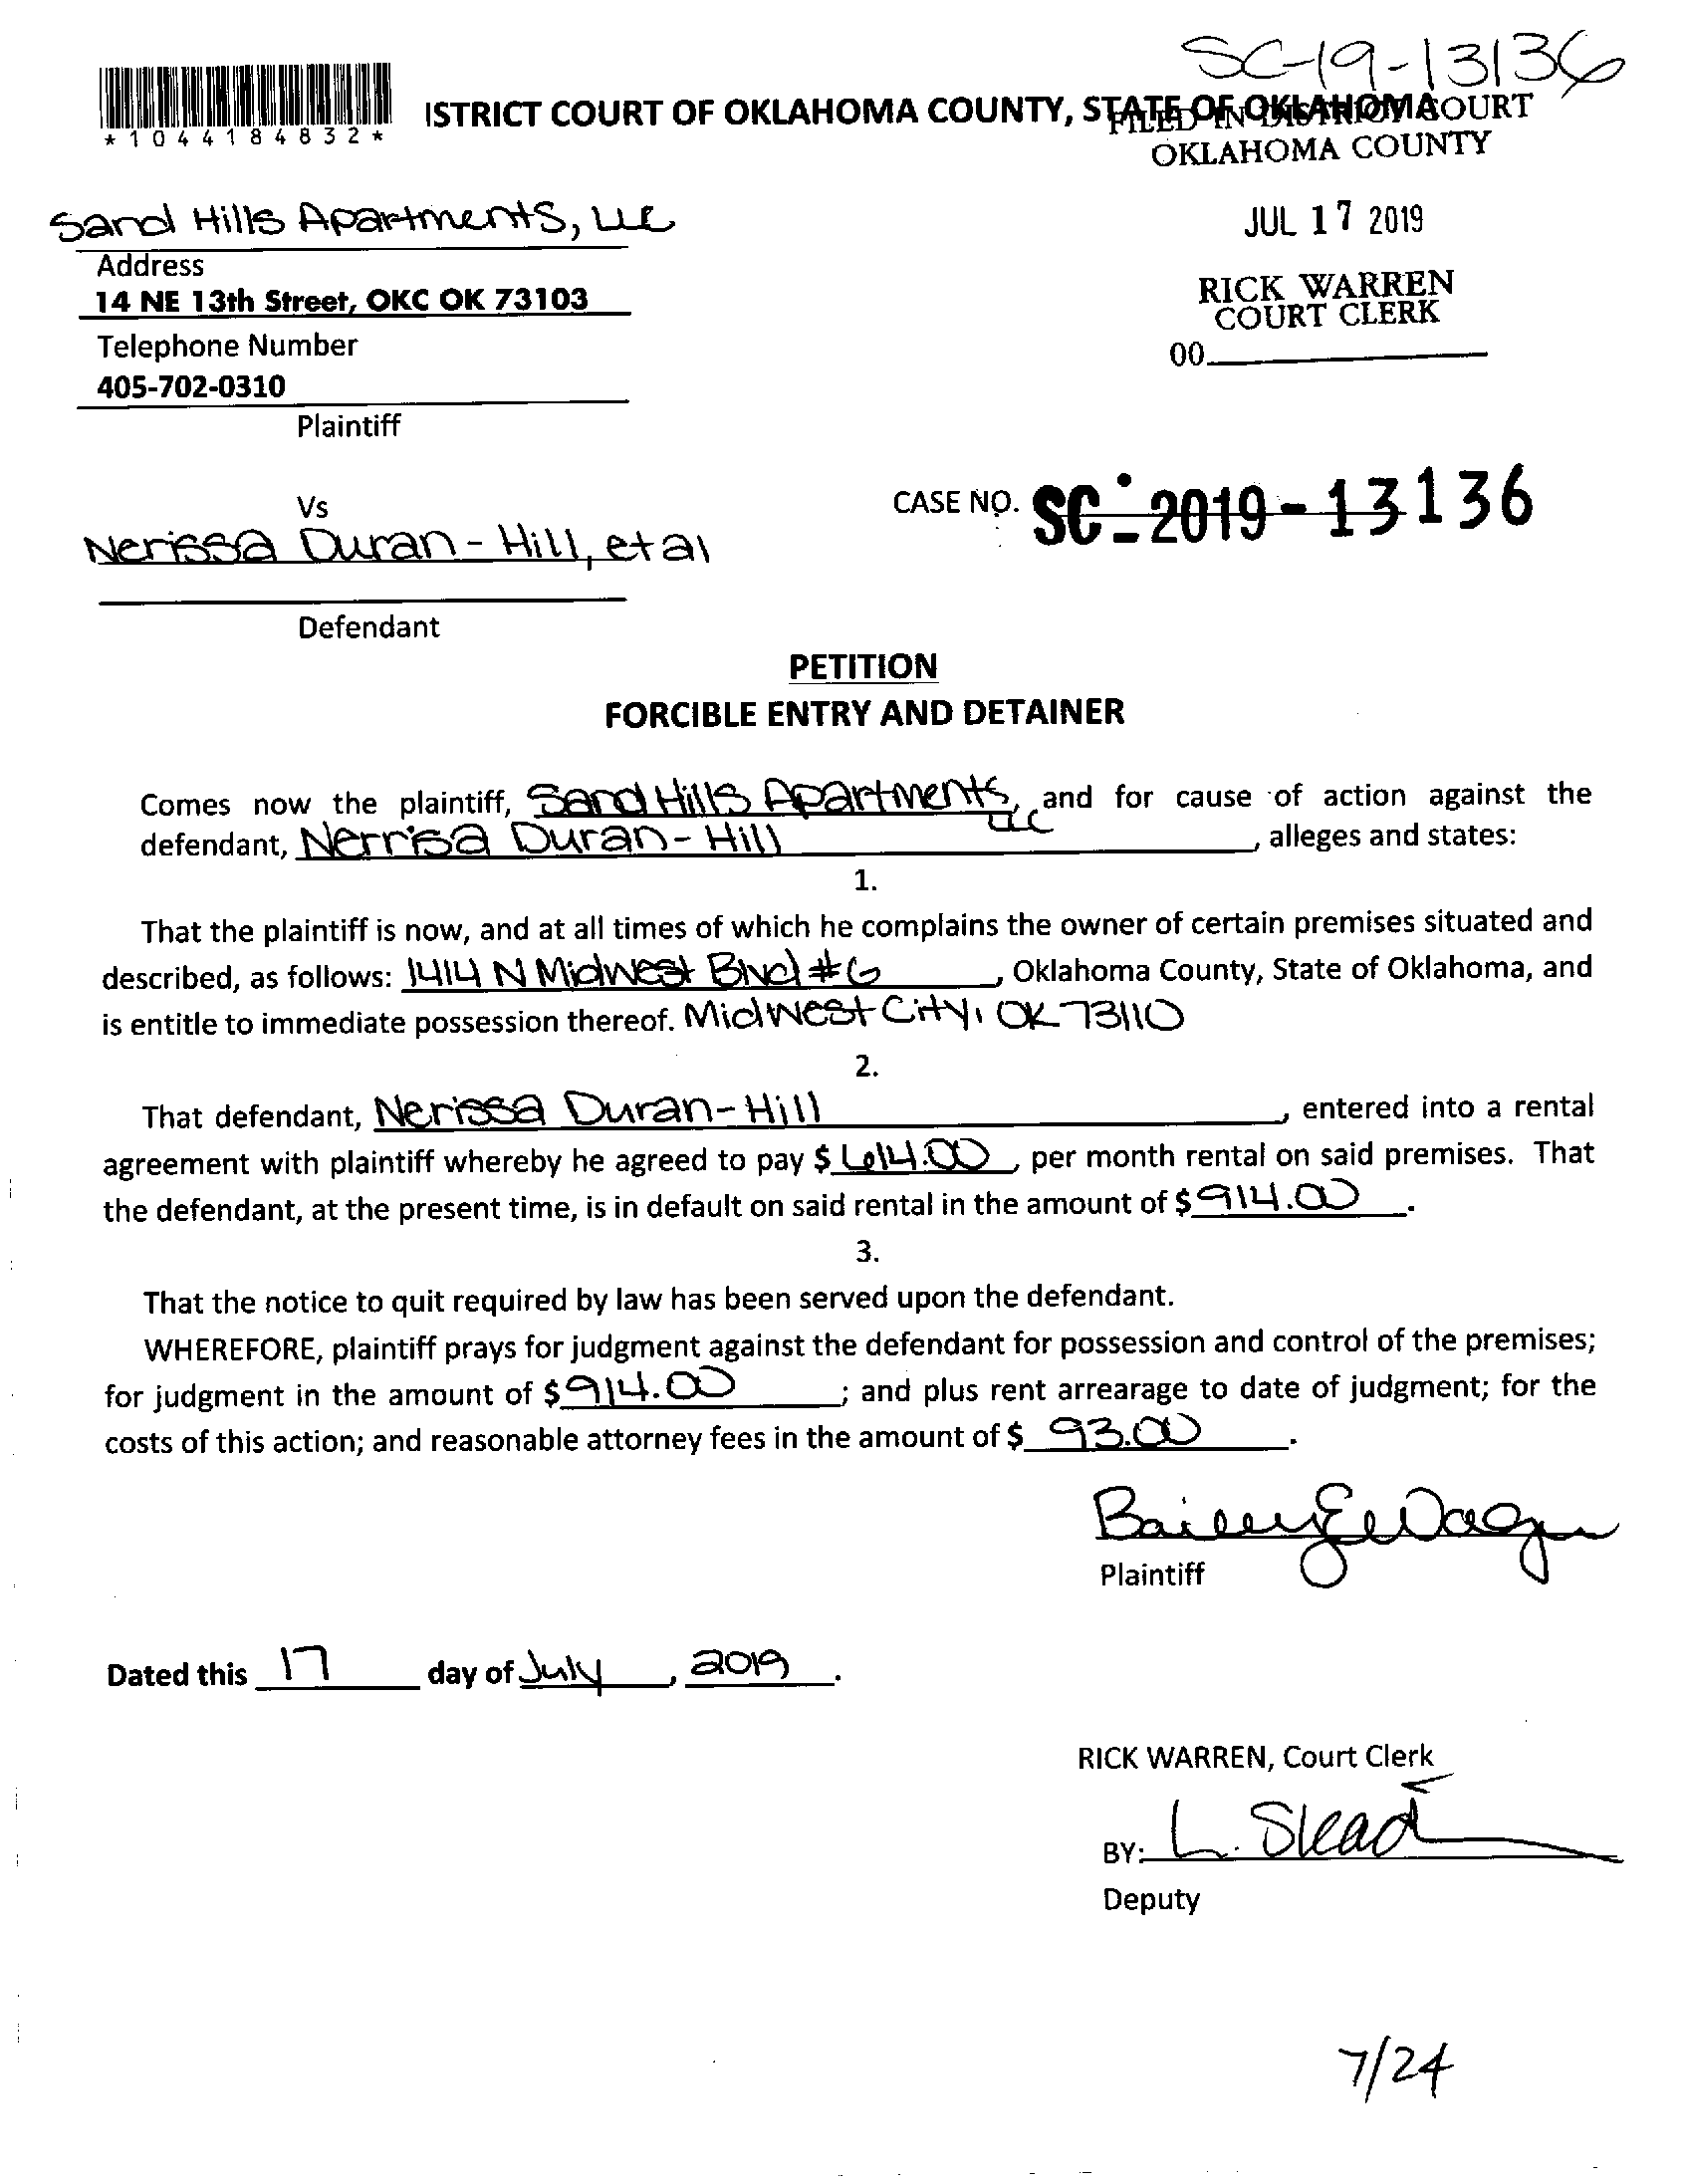 SC-19-13136
*1044184832*
ISTRICT COURT OF OKLAHOMA COUNTY, STATE OF OKLAHOMA
FILED IN DISTRICT COURT
OKLAHOMA COUNTY
JUL 17 2019
RICK WARREN
COURT CLERK
00
Sand Hills Apartments, LLC
Address
14 NE 13th Street, OKC OK 73103
Telephone Number
405-702-0310
Plaintiff
Vs
CASE NO. SC-2019-13136
Nerissa Duran-Hill, et al
Defendant
PETITION
FORCIBLE ENTRY AND DETAINER
Comes now the plaintiff, Sand Hills Apartments, LLC and for cause of action against the
defendant, Nerrisa Duran-Hill, alleges and states:
1.
That the plaintiff is now, and at all times of which he complains the owner of certain premises situated and
described, as follows: 1414 N Midwest Blvd #G, Oklahoma County, State of Oklahoma, and
is entitle to immediate possession thereof. Midwest City, OK 73110
2.
That defendant, Nerissa Duran-Hill, entered into a rental
agreement with plaintiff whereby he agreed to pay $ 614.00, per month rental on said premises. That
the defendant, at the present time, is in default on said rental in the amount of $ 914.00.
3.
That the notice to quit required by law has been served upon the defendant.
WHEREFORE, plaintiff prays for judgment against the defendant for possession and control of the premises;
for judgment in the amount of $ 914.00; and plus rent arrearage to date of judgment; for the
costs of this action; and reasonable attorney fees in the amount of $ 93.00.
Plaintiff
Dated this 17 day of July, 2019.
RICK WARREN, Court Clerk
BY: L. Slead
Deputy
7/24